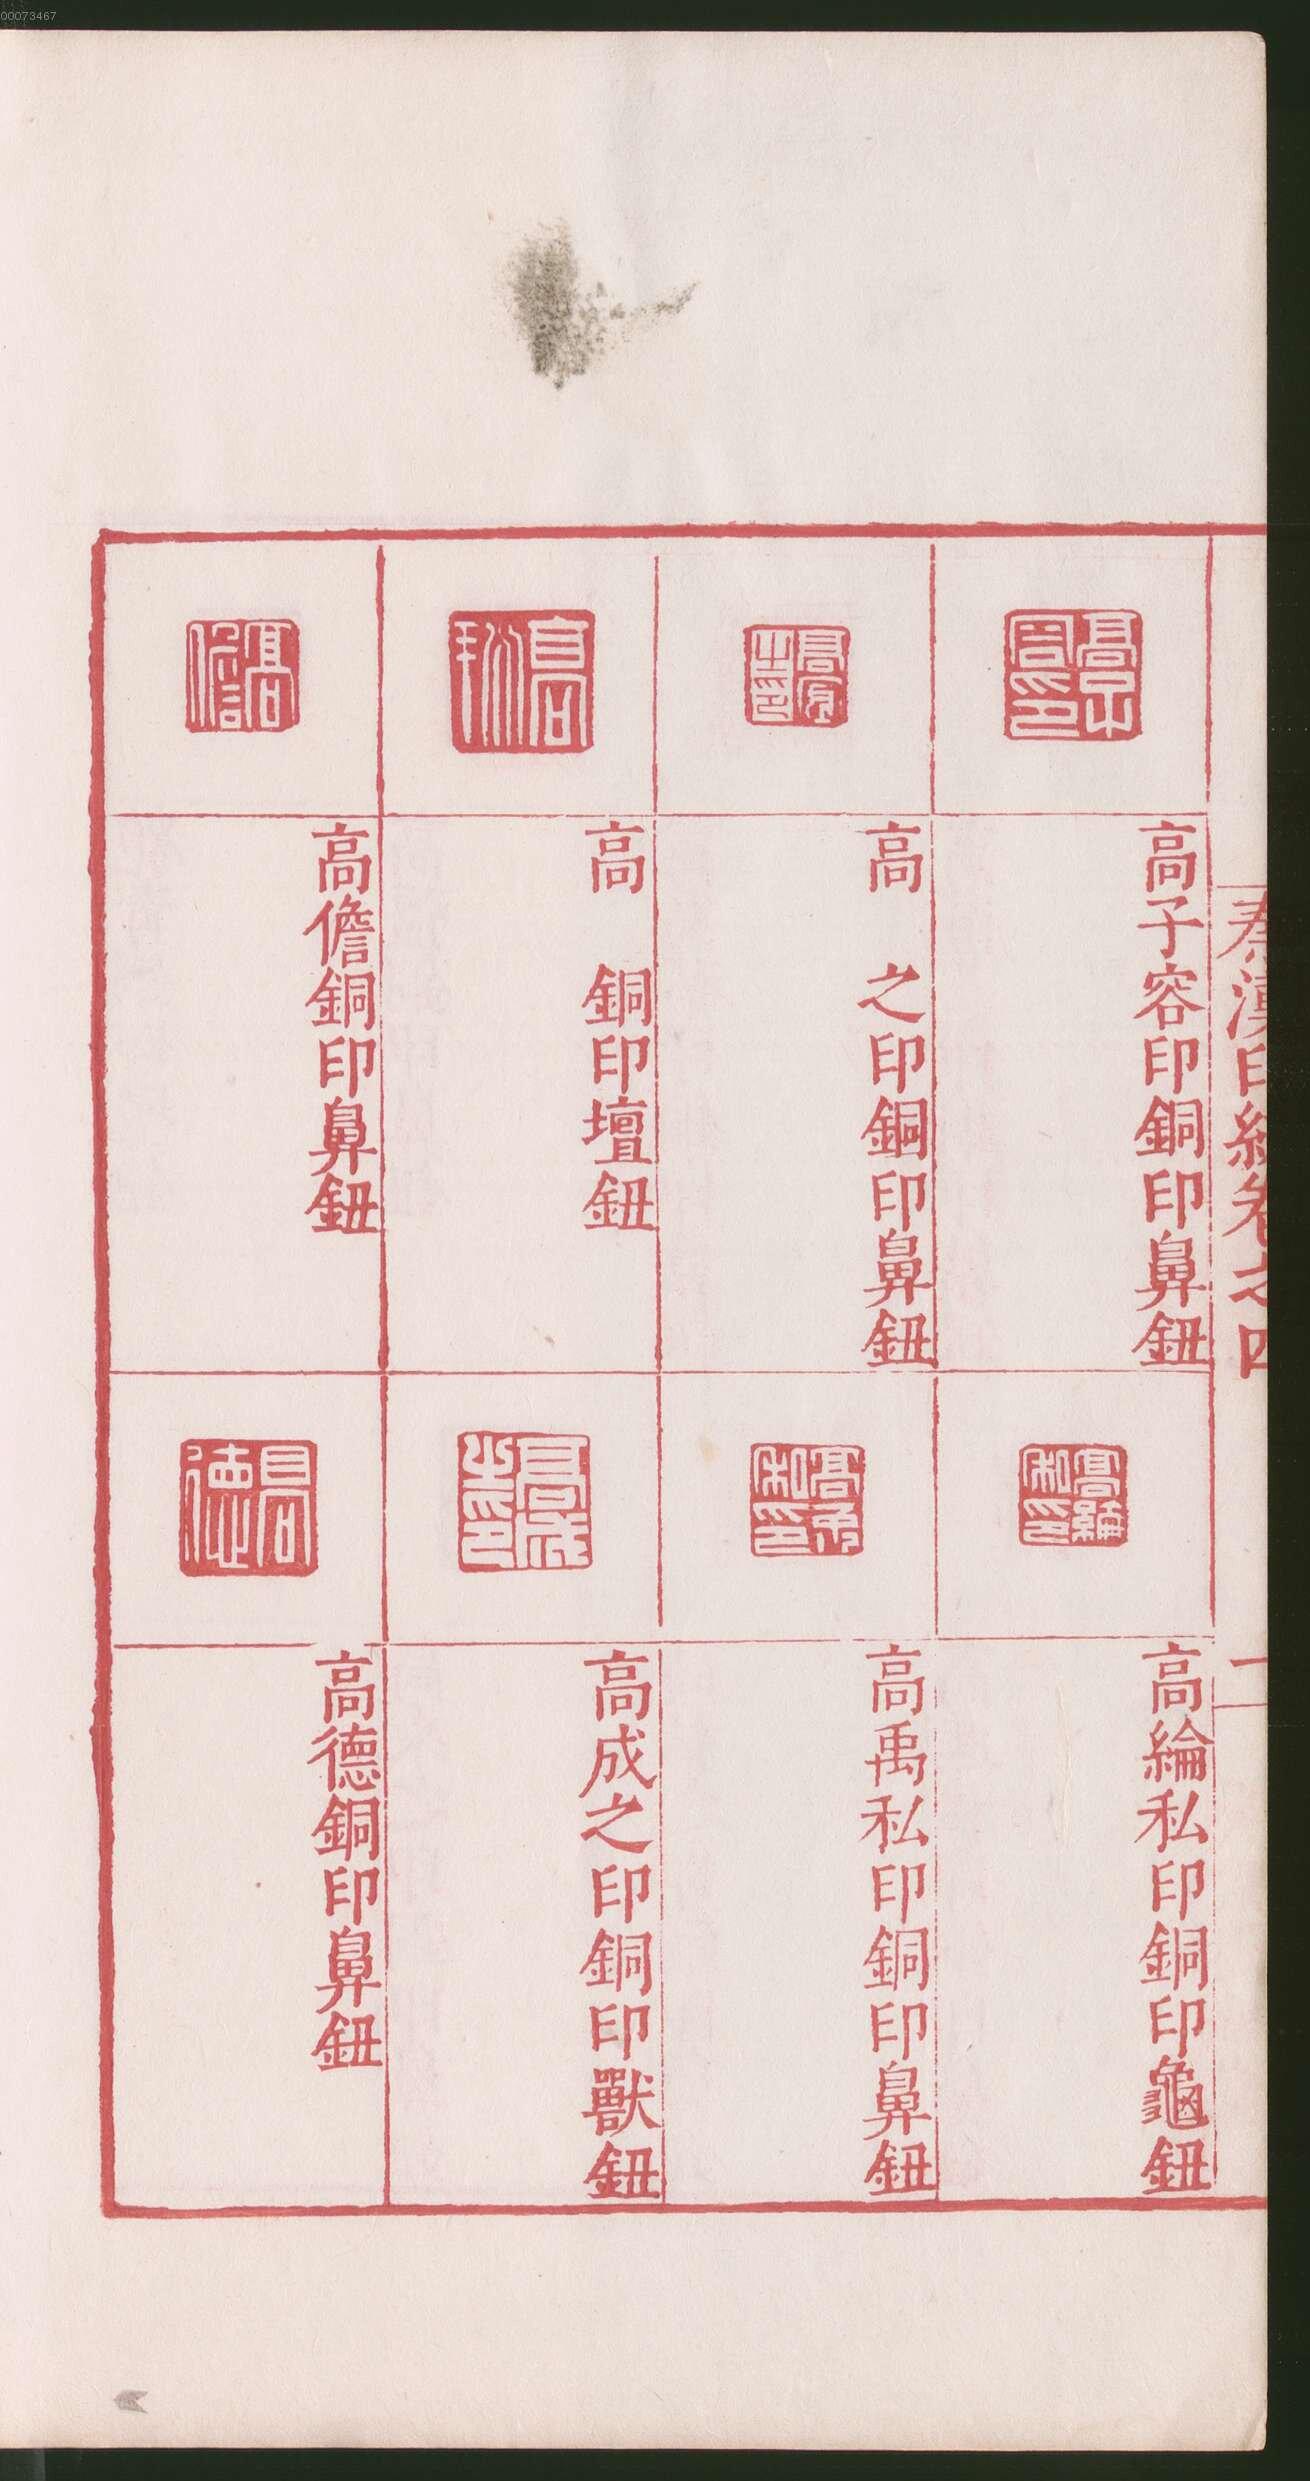 00073467
秦漢印統卷之四
二
高子容印銅印鼻鈕
高　之印銅印鼻鈕
高　銅印壇鈕
高儋銅印鼻鈕
高綸私印銅印龜鈕
高禹私印銅印鼻鈕
高成之印銅印獸鈕
高德銅印鼻鈕